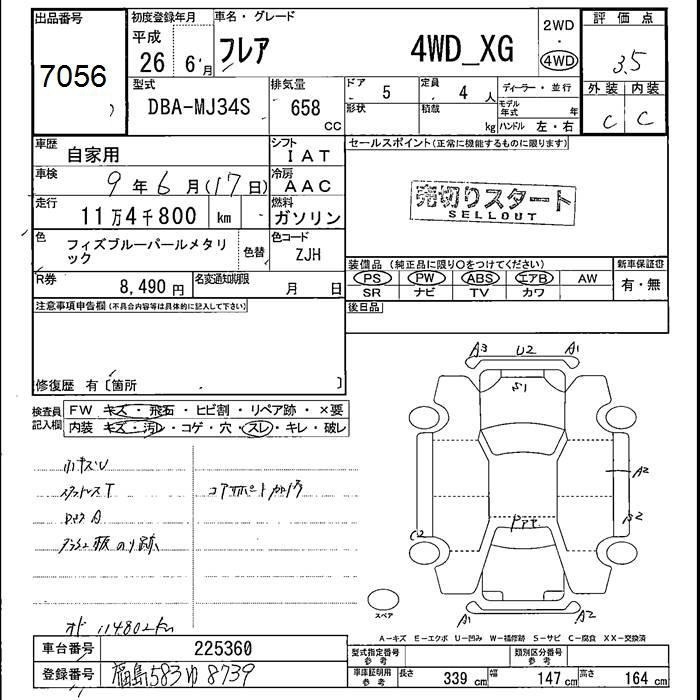 出品番号
7056
初度登録年月
平成
26 6月
車名・グレード
フレア 4WD_XG
2WD
・
4WD
評価点
3.5
外装 内装
C C
型式
DBA-MJ34S
排気量
658
CC
ドア
5
定員
4 人
形状
積載
kg
ディーラー・並行
モデル年式 年
ハンドル 左・右
車歴
自家用
シフト
IAT
車検
9年6月(17日)
冷房
AAC
走行
11万4千800 km
燃料
ガソリン
色
フィズブルーパールメタリ
ック
色替
色コード
ZJH
R券
8,490 円
名変通知期限
月 日
セールスポイント(正常に機能するものに限ります)
売切りスタート
SELLOUT
装備品 (純正品に限り○をつけてください)
PS PW ABS エアB AW
SR ナビ TV カワ
新車保証書
有・無
後日品
注意事項申告欄(不具合内容等は具体的に記入して下さい)
修復歴 有〔箇所 〕
検査員
記入欄
FW キズ・飛石・ヒビ割・リペア跡・×要
内装 キズ・汚レ・コゲ・穴・スレ・キレ・破レ
小キズU
スタットレスT
コアサポート
114802km
A3 U2 A1
S1
A2
C2
A1 A2
スペア
A-キズ E-エクボ U-凹み W-補修跡 S-サビ C-腐食 XX-交換済
車台番号
225360
登録番号
福島583ゆ8739
型式指定番号
参考
類別区分番号
参考
車庫証明用
参考
長さ
339 cm
幅
147 cm
高さ
164 cm